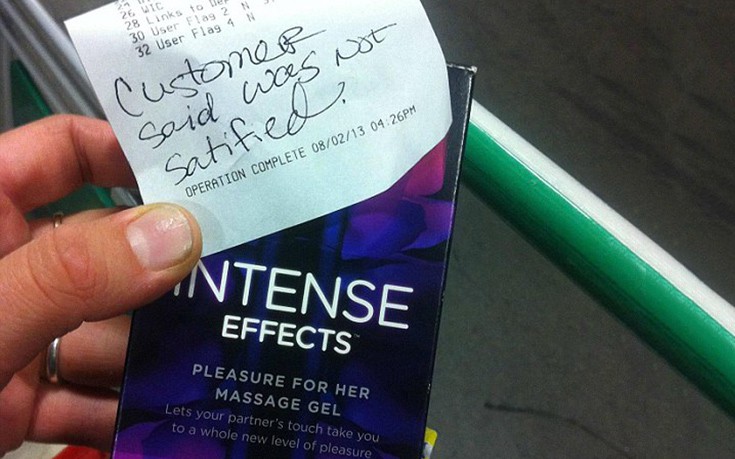 26 WIC
28 Links to
30 User Flag 2 N
32 User Flag 4 N
Customer
said was not
satified.
OPERATION COMPLETE 08/02/13 04:26PM
INTENSE
EFFECTS
PLEASURE FOR HER
MASSAGE GEL
Lets your partner's touch take you
to a whole new level of pleasure